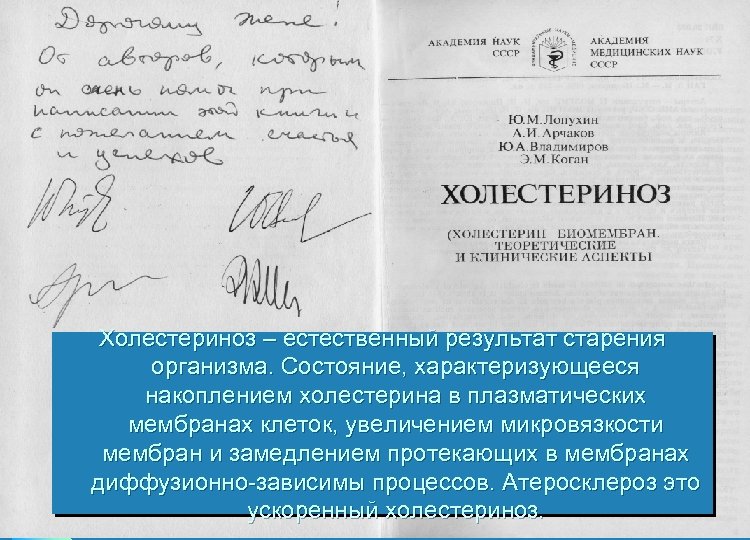 Дорогому Жене!
От авторов, которым
он очень помог при
написании этой книги и
с пожеланием счастья
и успехов
АКАДЕМИЯ НАУК
СССР
АКАДЕМИЯ
МЕДИЦИНСКИХ НАУК
СССР
Ю.М. Лопухин
А.И. Арчаков
Ю.А. Владимиров
Э.М. Коган
ХОЛЕСТЕРИНОЗ
(ХОЛЕСТЕРИН БИОМЕМБРАН.
ТЕОРЕТИЧЕСКИЕ
И КЛИНИЧЕСКИЕ АСПЕКТЫ
Холестериноз – естественный результат старения
организма. Состояние, характеризующееся
накоплением холестерина в плазматических
мембранах клеток, увеличением микровязкости
мембран и замедлением протекающих в мембранах
диффузионно-зависимы процессов. Атеросклероз это
ускоренный холестериноз.